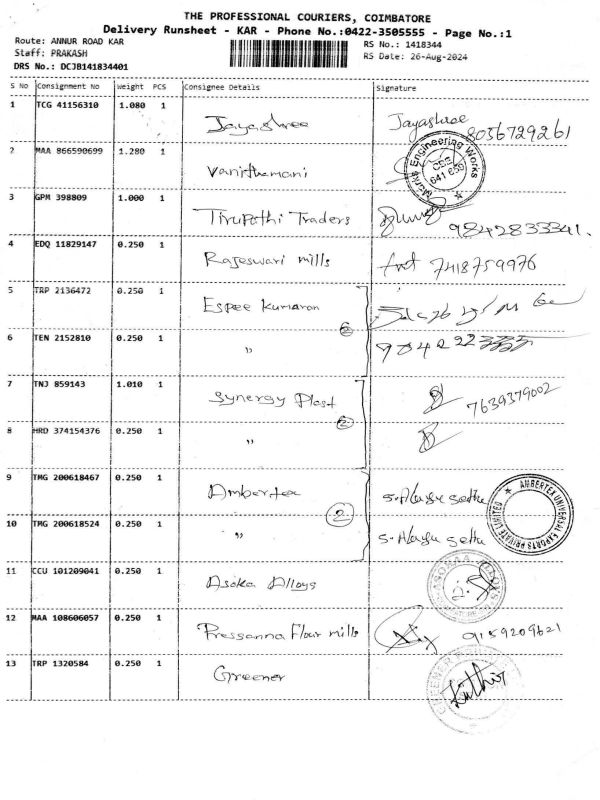 THE PROFESSIONAL COURIERS, COIMBATORE
Delivery Runsheet - KAR - Phone No.:0422-3505555 - Page No.:1
Route: ANNUR ROAD KAR
Staff: PRAKASH
DRS No.: DCJB141834401
RS No.: 1418344
RS Date: 26-Aug-2024
S No Consignment No Weight PCS Consignee Details Signature
1 TCG 41156310 1.080 1 Jayashree Jayashree 8056729261
2 MAA 866590699 1.280 1 Vanithamani Marks Engineering Works CBE 641 659
3 GPM 398809 1.000 1 Tirupathi Traders 9842833341.
4 EDQ 11829147 0.250 1 Rajeswari mills 7418759976
5 TRP 2136472 0.250 1 Espee Kumaran
6 TEN 2152810 0.250 1 " 2
7 TNJ 859143 1.010 1 Synergy Plast 2 7639379002
8 HRD 374154376 0.250 1 "
9 TMG 200618467 0.250 1 Ambertex AMBERTEX UNIVERSAL EXPORTS PRIVATE LIMITED
10 TMG 200618524 0.250 1 " 2
11 CCU 101209041 0.250 1 Asoka Alloys
12 MAA 108606057 0.250 1 Pressanna Flour mills 9159209621
13 TRP 1320584 0.250 1 Greener